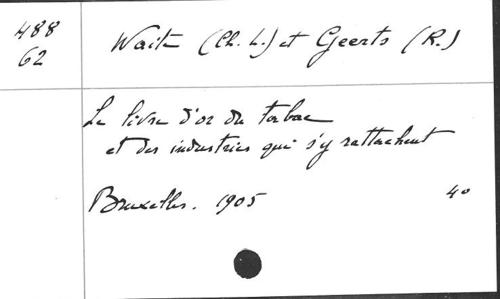 488
62
Waite (Ch. L.) et Geerts (R.)
Le livre d'or du tabac
et des industries qui s'y rattachent
Bruxelles. 1905 4o